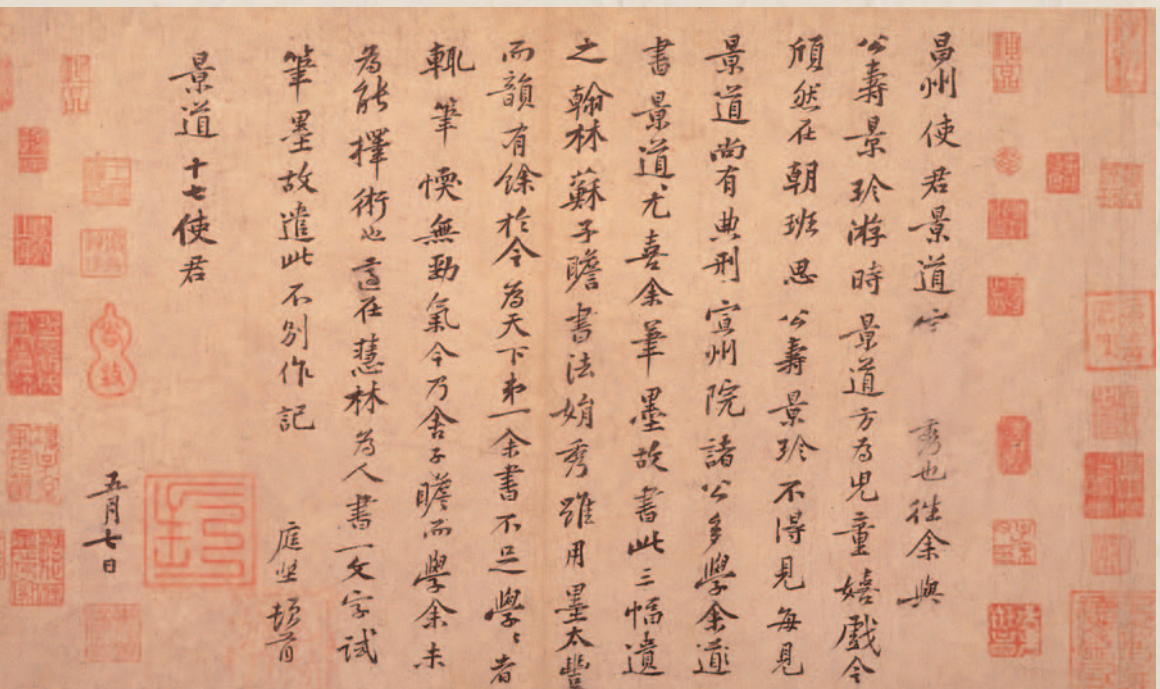 昌州使君景道 秀也往余與
公壽景珍游時景道方為兒童嬉戲今
頎然在朝班思公壽景珍不得見每見
景道尚有典刑宣州院諸公多學余
書景道尤喜余筆墨故書此三幅遺
之翰林蘇子瞻書法娟秀雖用墨太豐
而韻有餘於今為天下第一余書不足學〻者
輒筆愞無勁氣今乃舍子瞻而學余未
為能擇術也適在慧林為人書一文字試
筆墨故遣此不別作記 庭堅頓首
景道十七使君
五月七日